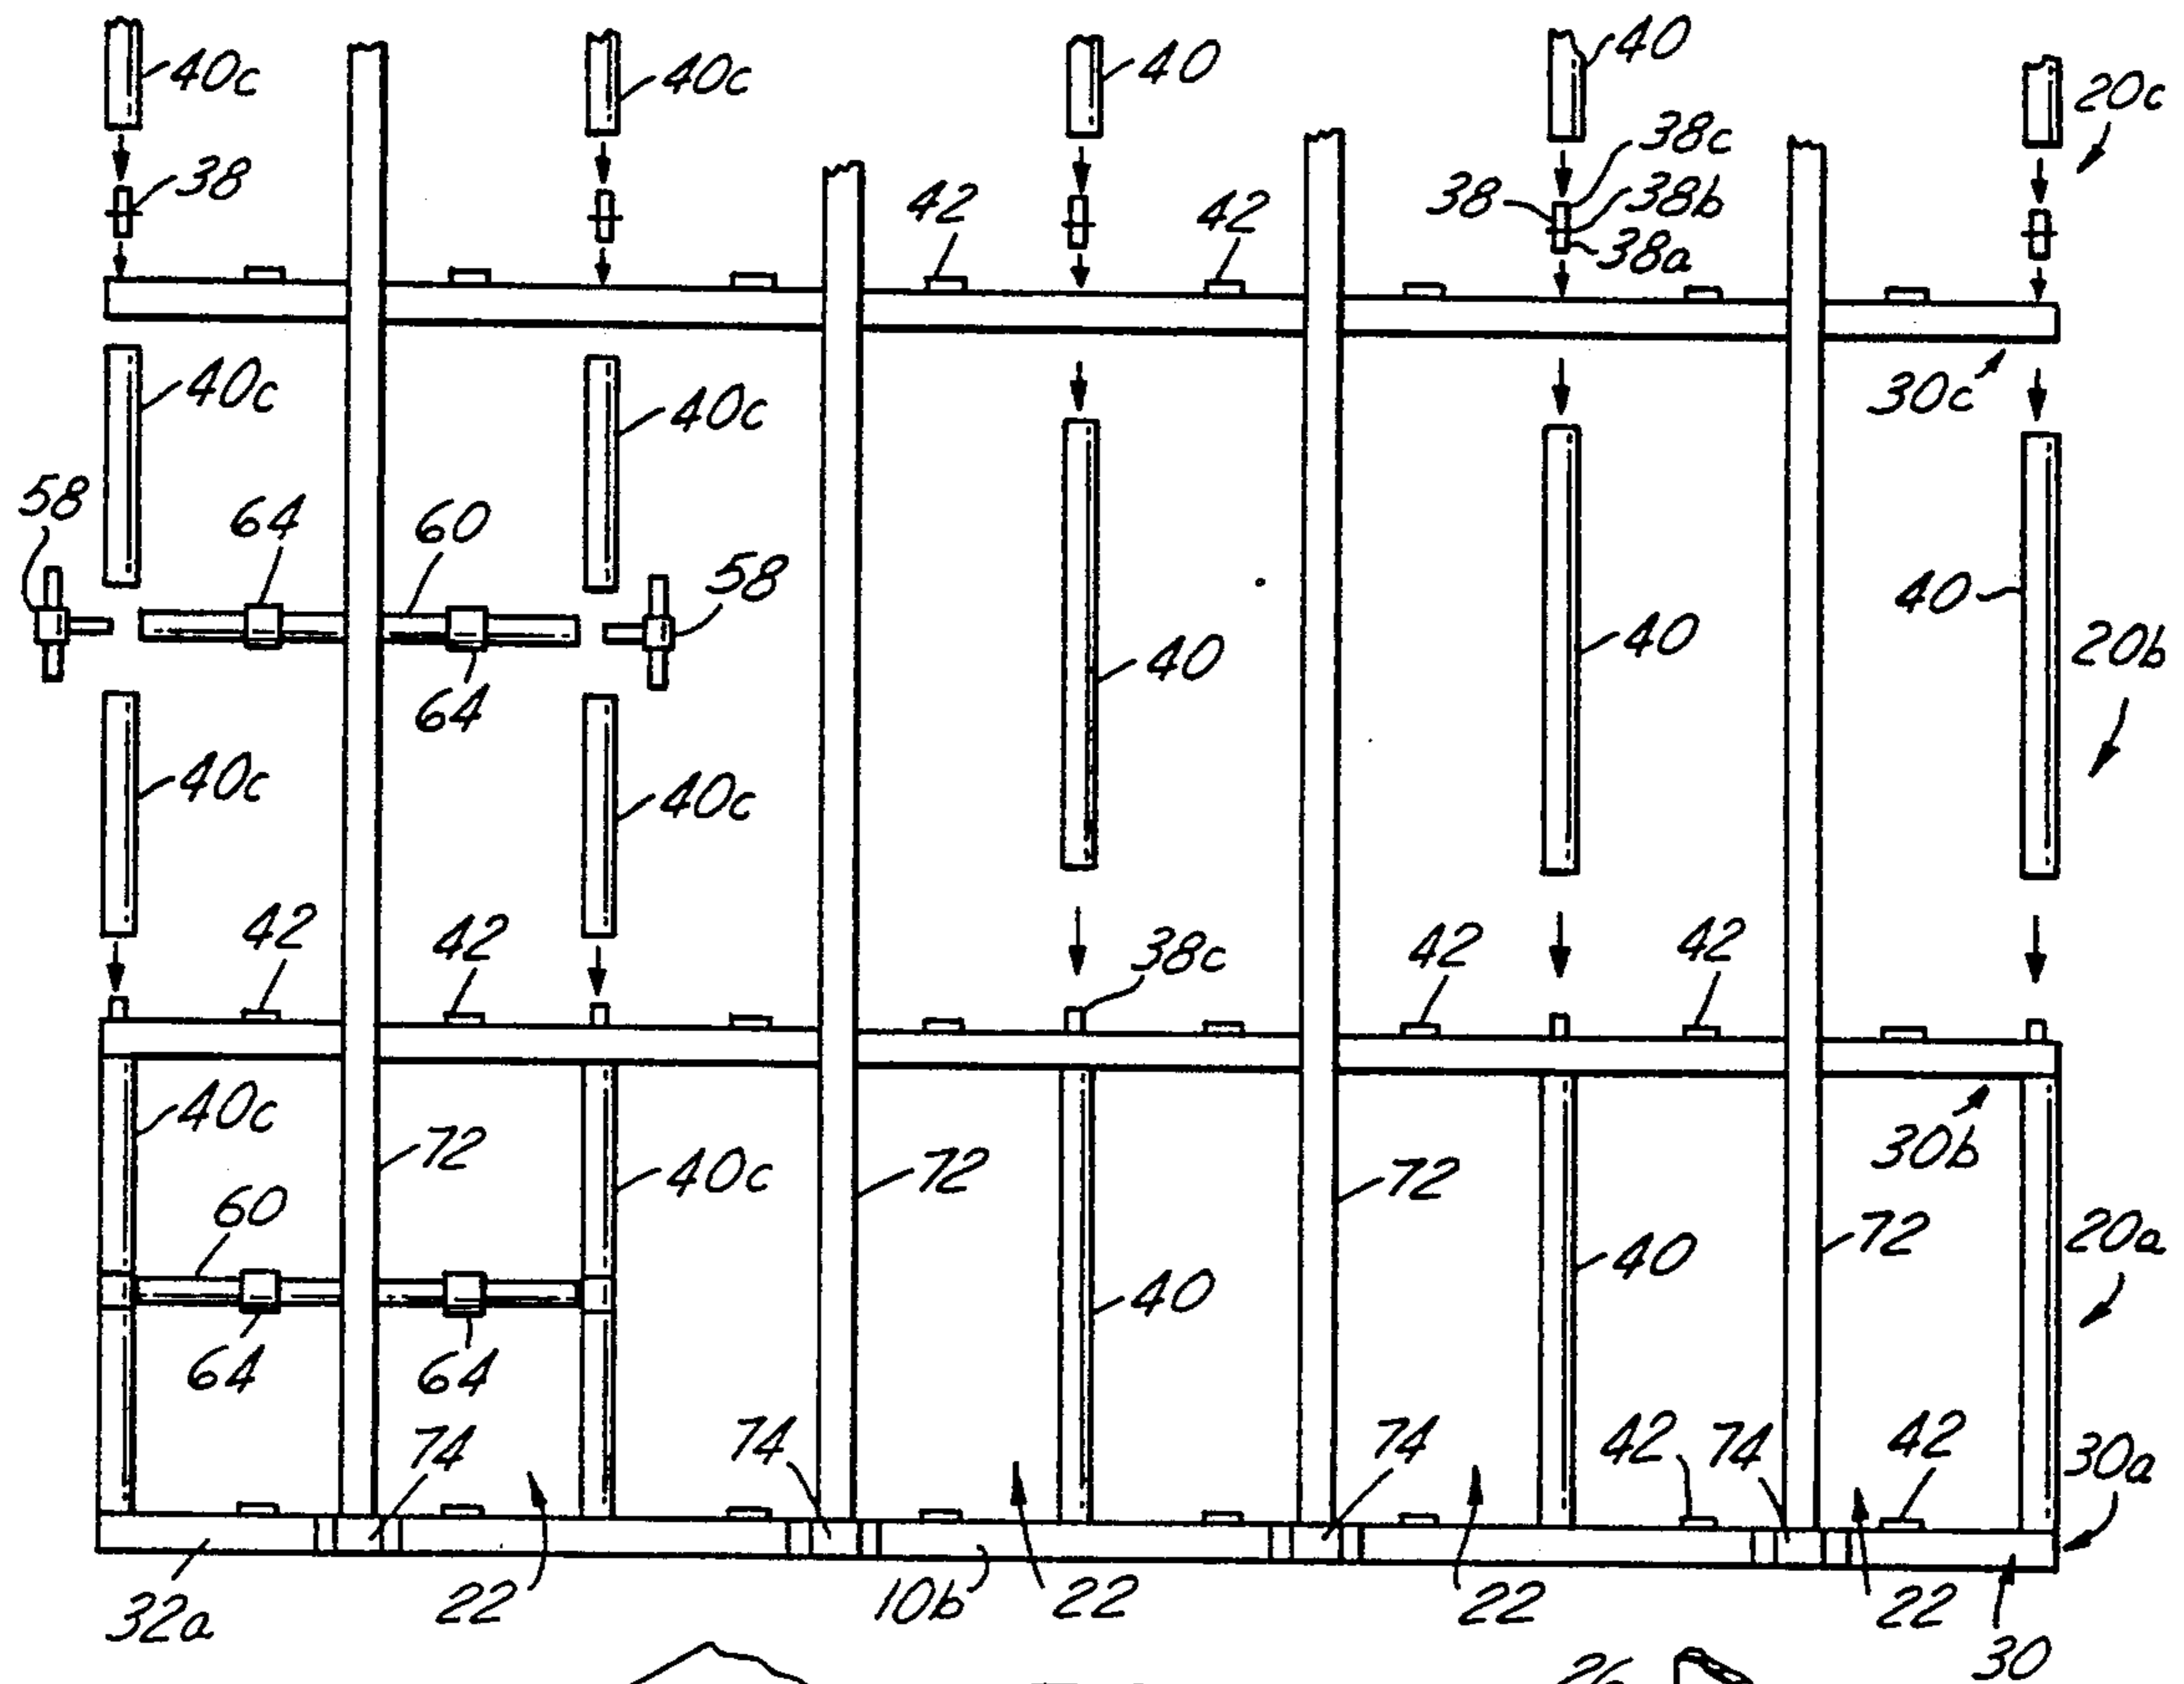 40c
40c
40
40
20c
38
38c
38
38b
38a
42
42
40c
40c
30c
58
64
60
58
40
20b
40
40
64
40c
40c
42
42
38c
42
42
40c
72
40c
72
72
30b
72
20a
60
40
40
64
64
74
74
74
42
74
42
30a
32a
22
10b
22
22
22
30
26